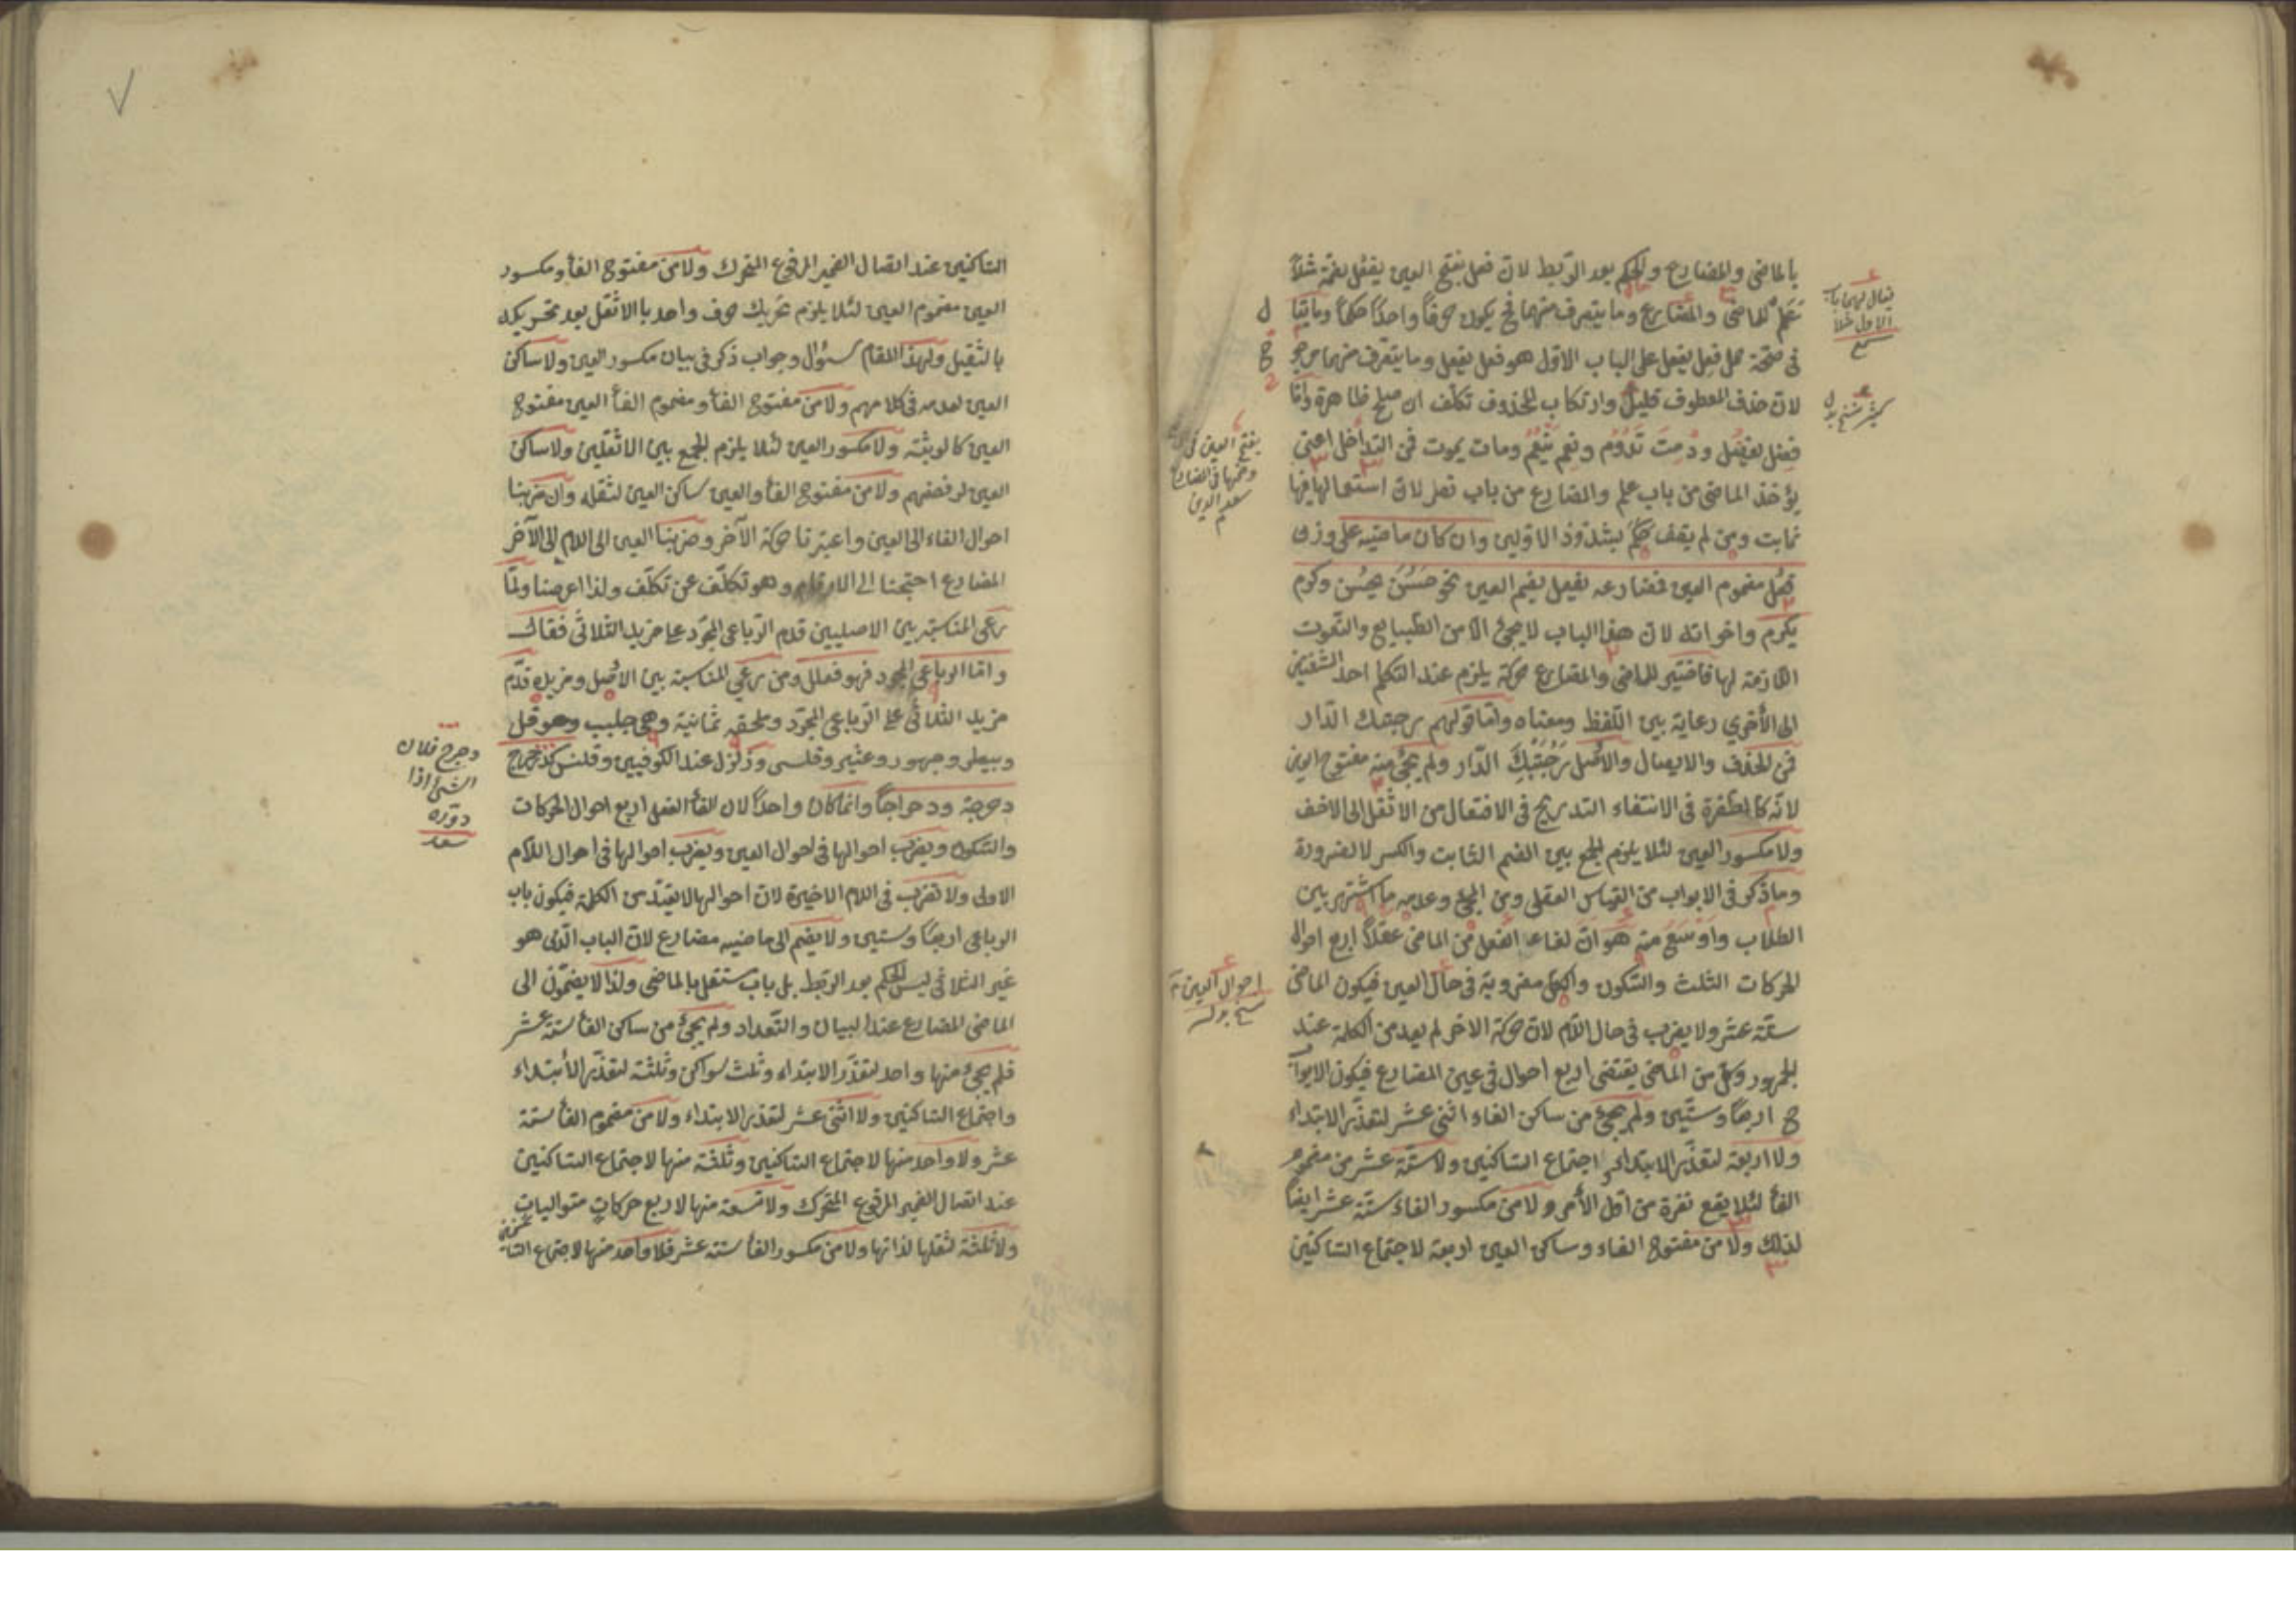 بالماضى والمضارع والحكم بعد الربط لان فعل بفتح العين يفعل بضمة مثلاً
للماضى والمضارع وما يتصرف منهما فح يكون حرفاً واحداً حكماً
فى صحة حمل فعل يفعل على الباب الاول هو فعل يفعل وما يتصرف منهما
لان حذف المعطوف قليل وارتكاب المحذوف تكلف ان صلح ظاهرة وامّا
فضل يفضل ودمت تدوم ونعم ينعم ومات يموت فمن التداخل اعنى
يؤخذ الماضى من باب علم والمضارع من باب نصر لان استعمالها فيها
ثابت ومن لم يقف حكم بشذوذ الاولين وان كان ماضيه على وزن
فعُل مضموم العين فمضارعه يفعل بضم العين نحو حَسُنَ يحسُن وكرم
يكرم واخواته لان هذا الباب لا يجئ الا من الطبايع والنعوت
اللازمة لها فاختير للماضى والمضارع حركة يلزم عند التكلم احد الشفتين
الى الأخرى رعاية بين اللفظ ومعناه وامّا قولهم رحبتك الدّار
فمن الحذف والايصال والاصل رَحُبَتْ بِكَ الدّار ولم يجئ منه مفتوح العين
لانّه كالطفرة فى الانتفاء التدريج فى الانتقال من الاثقل الى الاخف
ولا مكسور العين لئلا يلزم الجمع بين الضم الثابت والكسر لا لضرورة
وما ذكر فى الابواب من القياس العقلى ومن المجئ وعدمه ما اشتهر بين
الطلاب واوسع منه هو انّ لفاء الفعل من الماضى عقلاً اربع احوال
الحركات الثلث والسّكون والكل مضروبة فى حال العين فيكون الماضى
ستّة عشر ولا يضرب فى حال اللّام لان حركة الاخر لم يعد من الكلمة عند
الجمهور وكل من الماضى يقتضى اربع احوال فى عين المضارع فيكون الابواب
ح اربعاً وستّين ولم يجئ من ساكن الفاء اثنى عشر لتعذّر الابتداء
ولا اربعة لتعذّر الابتداء واجتماع السّاكنين ولا ستّة عشر من مضموم
الفأ لئلا يقع نفرة من اول الأمر ولا من مكسور الفاء ستّة عشر ايضاً
لذلك ولا من مفتوح الفاء وساكن العين اربعة لاجتماع السّاكنين
يقال لهما باب
الاول مثلا
بفتح العين فى
وضمها فى المضارع
سعد الدين
احوال العين
السّاكنين عند اتصال الضمير المرفوع المتحرك ولا من مفتوح الفأ ومكسور
العين مضموم العين لئلا يلزم تحريك حرف واحد بالاثقل بعد تحريكه
بالثقيل ولهذا المقام سؤال وجواب ذكر فى بيان مكسور العين ولا ساكن
العين لعدمه فى كلامهم ولا من مفتوح الفأ ومضموم الفأ العين مفتوح
العين كالوبثه ولا مكسور العين لئلا يلزم الجمع بين الاثقلين ولا ساكن
العين لرفضهم ولا من مفتوح الفأ والعين ساكن العين لثقله وان ضربنا
احوال الفاء الى العين واعتبرنا حركة الآخر وضربنا العين الى اللام الى الآخر
المضارع احتجنا الى الارقام وهو تكلّف عن تكلّف ولذا اعرضنا ولمّا
رعى المناسبة بين الاصليين قدم الرّباعى المجرّد على مزيد الثلاثى فقال
وامّا الرباعى المجرد فهو فعلل ومن رعى المناسبة بين الاصل ومزيده قدّم
مزيد الثلاثى على الرّباعى المجرّد وملحقه ثمانية وهى جلبب وحوقل
وبيطر وجهور وعثير وقلسى وزلزل عند الكوفيين وقلنس كدحرج
دحرجة ودحراجاً وانّما كان واحداً لان لفأ الفعل اربع احوال الحركات
والسّكون ويضرب احوالها فى احوال العين ويضرب احوالها فى احوال اللّام
الاولى ولا تضرب فى اللام الاخيرة لان احوالها لا يعتدّ من الكلمة فيكون باب
الرباعى اربعاً وستين ولا يضم الى ماضيه مضارع لانّ الباب الّذى هو
غير الثلاثى ليس الحكم بعد الربط بل باب مستقل بالماضى ولذا لا يضمّون الى
الماضى المضارع عند البيان والتّعداد ولم يجئ من ساكن الفأ ستة عشر
فلم يجئ منها واحد لتعذّر الابتداء وثلث سواكن وثلثة لتعذّر الأبتداء
واجتماع السّاكنين ولا اثنى عشر لتعذر الابتداء ولا من مضموم الفأ ستة
عشر ولا واحد منها لاجتماع السّاكنين وثلثة منها لاجتماع السّاكنين
عند اتصال الضمير المرفوع المتحرك ولا تسعة منها لاربع حركاتٍ متوالياتٍ
ولا ثلثة لثقلها لذاتها ولا من مكسور الفأ ستة عشر فلا واحد منها لاجتماع السّاكنين
دحرج فلان
الشئ اذا
دوّره
سعد